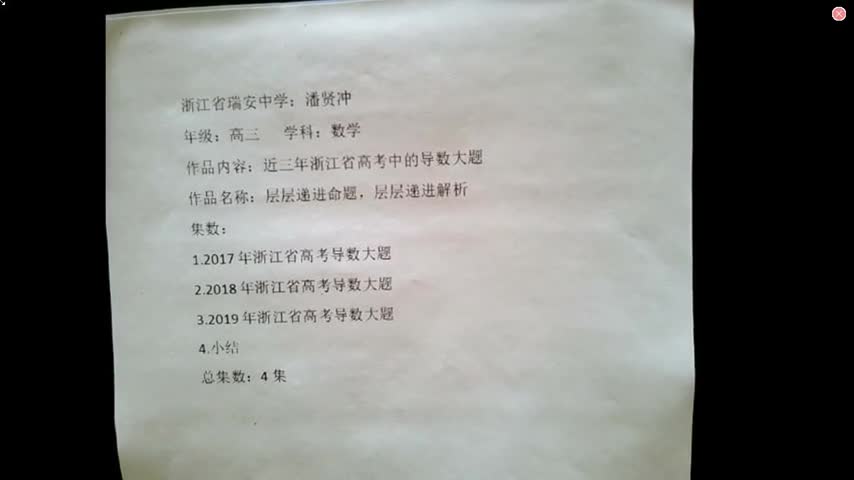 浙江省瑞安中学：潘贤冲
年级：高三 学科：数学
作品内容：近三年浙江省高考中的导数大题
作品名称：层层递进命题，层层递进解析
集数：
1.2017年浙江省高考导数大题
2.2018年浙江省高考导数大题
3.2019年浙江省高考导数大题
4.小结
总集数：4 集